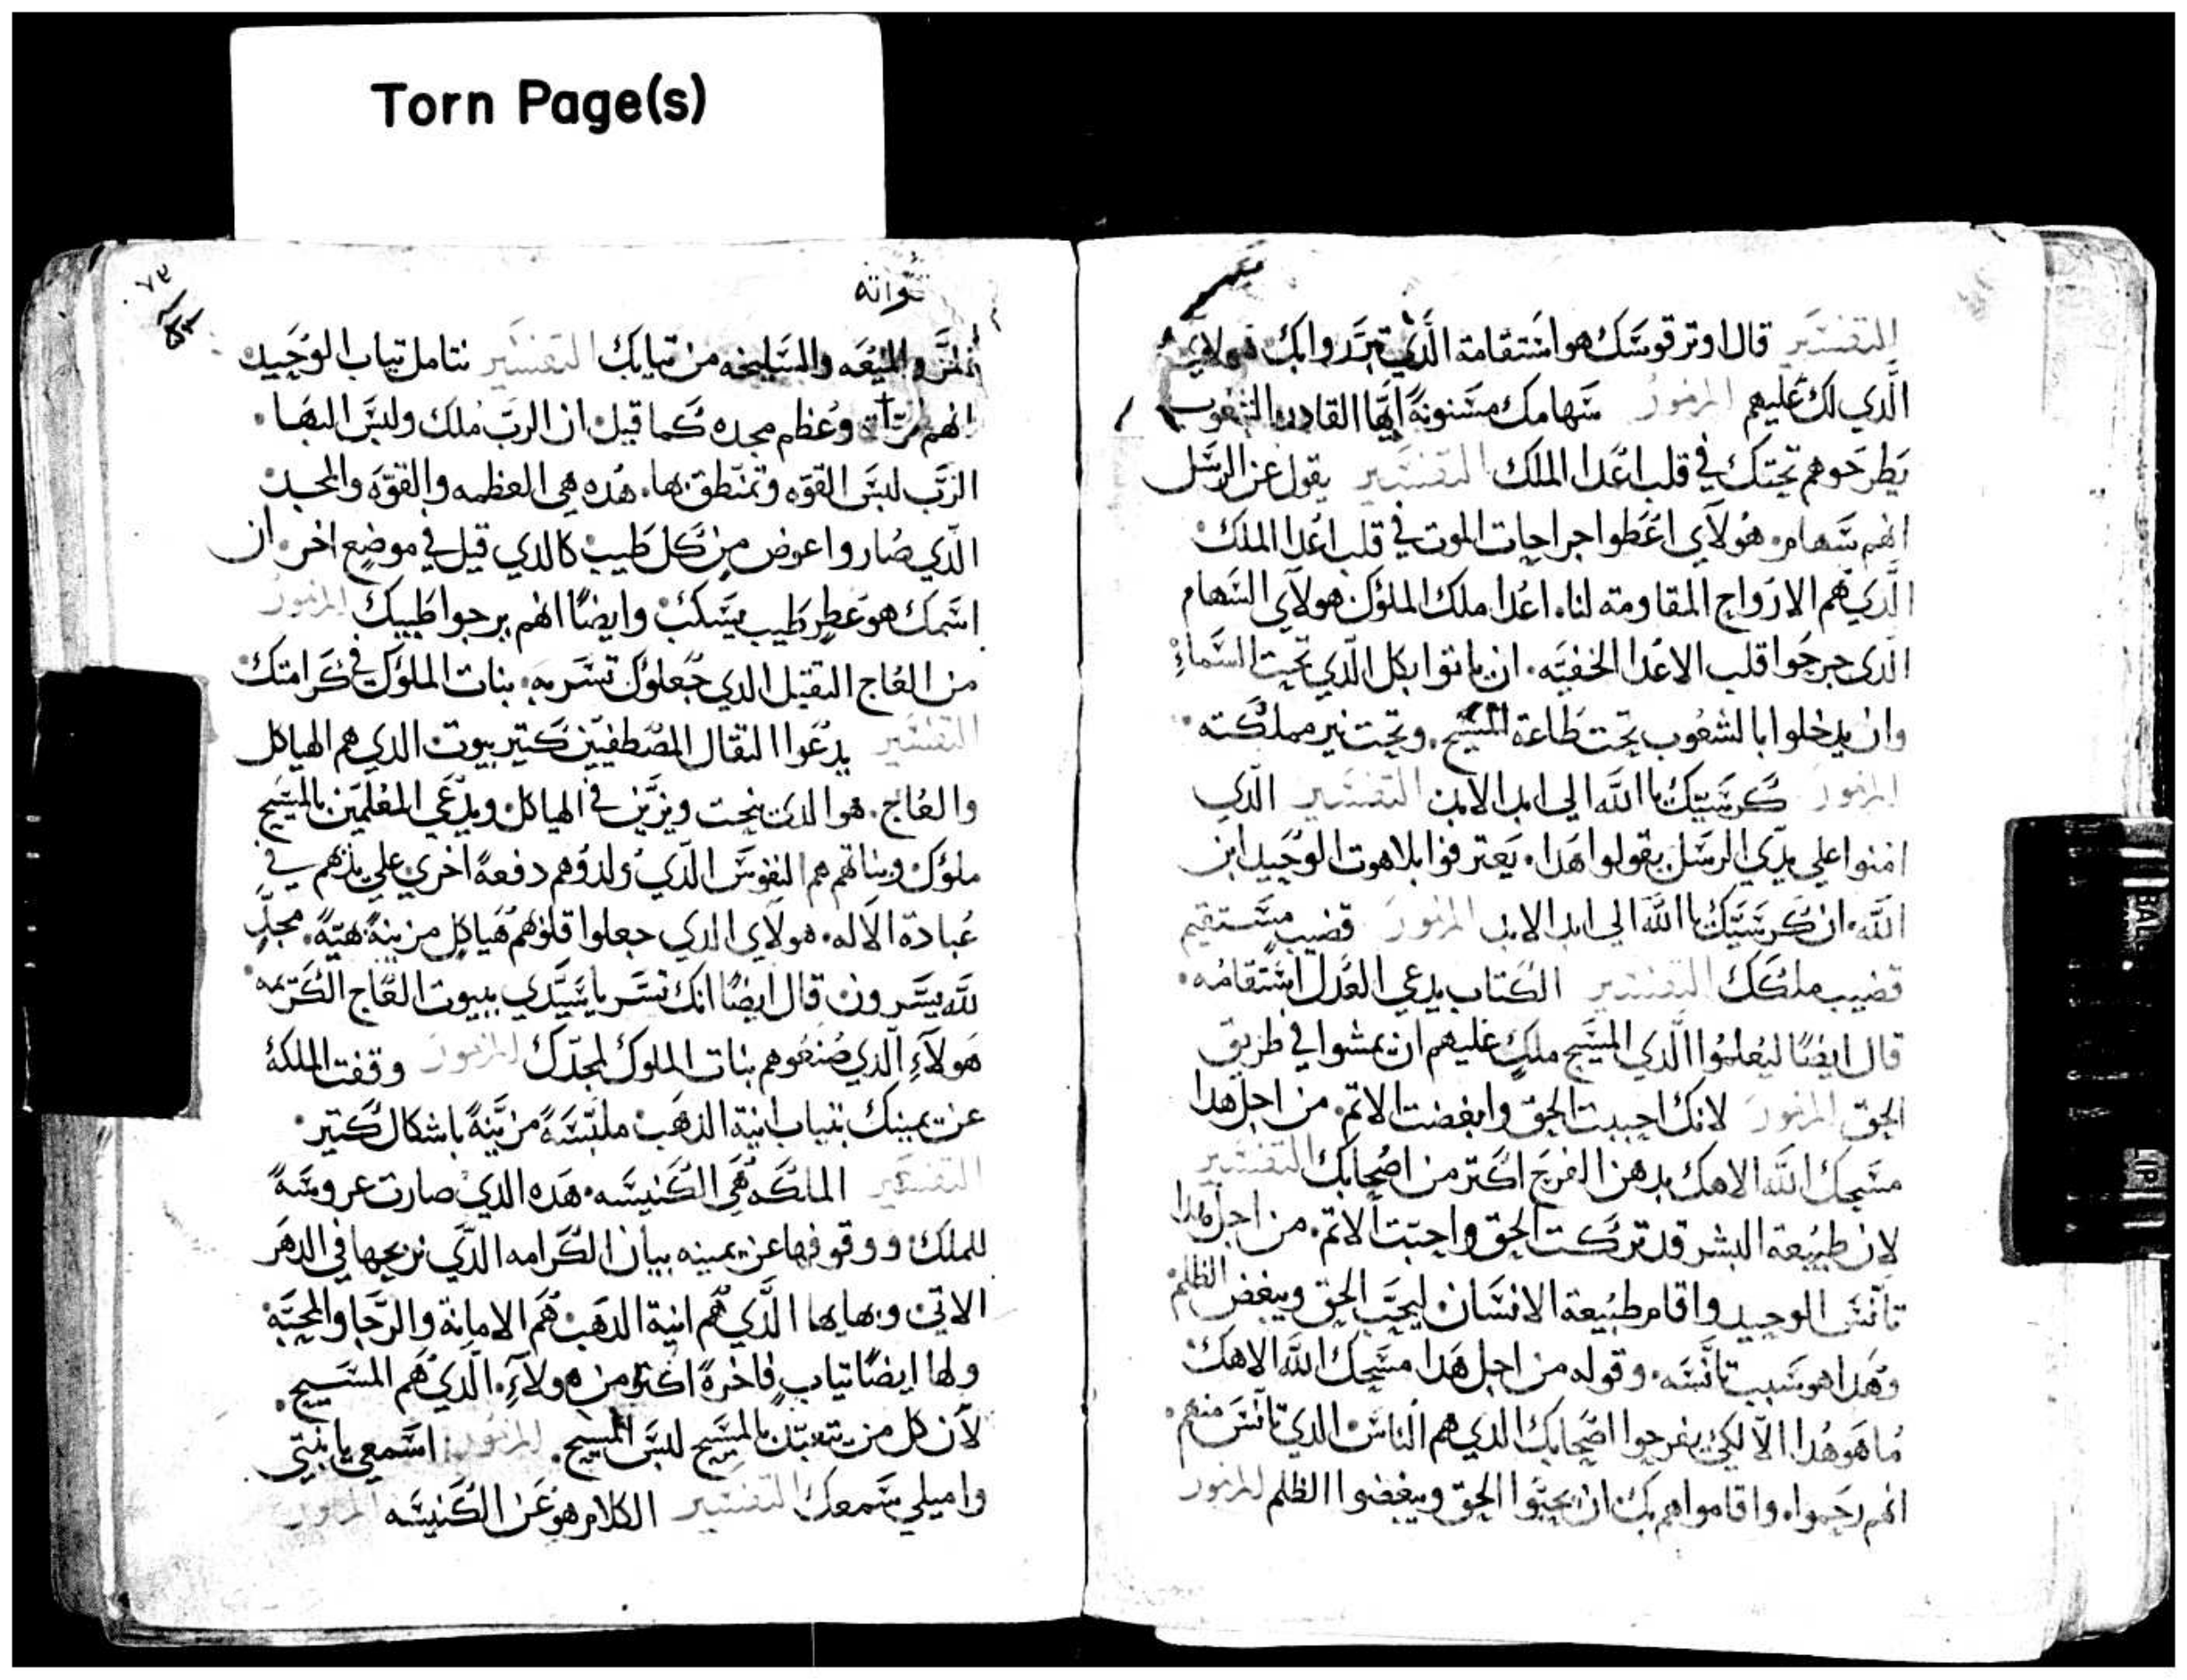 Torn Page(s)
التفسير قال اوتر قوسك هو انتقامة الذي تمردوا بك هولاي
الذي لك عليهم المزمور سهامك مسنونة ايها القادر الشعوب
يطرحوهم تحتك في قلب اعدا الملك التفسير يقول عن الرسل
انهم سهام هولاي اعطوا جراحات الموت في قلب اعدا الملك
الذي هم الارواح المقاومه لنا اعدا ملك الملوك هولاي السهام
الذي جرحوا قلب الاعدا الخفيه ان ياتوا بكل الذي تحت السماء
وان يدخلوا بالشعوب تحت طاعة المسيح وتحت نير مملكته
المزمور كرسيك ياالله الي ابد الابد التفسير الذي
امنوا علي يدي الرسل يقولوا هدا يعترفوا بلاهوت الوحيد ابن
الله ان كرسيك ياالله الي ابد الابد المزمور قضيب مستقيم
قضيب ملكك التفسير الكتاب يدعي العدل استقامه
قال ايضا ليعلموا الذي المسيح ملك عليهم ان يمشوا في طريق
الحق المزمور لانك احببت الحق وابغضت الاتم من اجل هدا
مسحك الله الاهك بدهن الفرح اكتر من اصحابك التفسير
لان طبيعة البشر قد تركت الحق واحبت الاتم من اجل هدا
تانس الوحيد واقام طبيعة الانسان ليحب الحق ويبغض الظلم
وهدا هو سبب تانسه وقوله من اجل هدا مسحك الله الاهك
ما هو هدا الا لكي يفرحوا اصحابك الدي هم الناس الدي تانس منهم
انهم رحموا واقاموا هم بك ان يحبوا الحق ويبغضوا الظلم المزمور
٧٣
المر والميعه والسليخه من تيابك التفسير نتامل تياب الوحيد
انهم وعظم مجده كما قيل ان الرب ملك ولبس البها
الرب لبس القوه وتمنطق بها هده هي العظمه والقوة والمجد
الدي صاروا عوض من كل طيب كالدي قيل في موضع اخر ان
اسمك هو عطر طيب يسكب وايضا انهم يرجوا طيبك المزمور
من العاج التقيل الدي جعلوك تسر به بنات الملوك في كرامتك
التفسير يدعوا التقال المصطفيين كتير بيوت الدي هم الهياكل
والعاج هو الدي ينحت ويزين في الهياكل ويدعي المعلمين بالمسيح
ملوك وبناتهم هم النفوس الدي ولدوهم دفعة اخري علي يدهم في
عبادة الاله هولاي الدي جعلوا قلوبهم هياكل مزينة بهية مجد
لله يسرون قال ايضا انك تسر يا سيدي ببيوت العاج الكريمه
هولاء الدي صنعوهم بنات الملوك لمجدك المزمور وقفت الملكة
عن يمينك بتياب انية الدهب ملتبسة مزينة باشكال كتير
التفسير الملكه هي الكنيسه هده الدي صارت عروسة
للملك ووقوفها عن يمينه بيان الكرامه الدي نربحها في الدهر
الاتي وبهايها الدي هم انية الدهب هم الامانة والرجا والمحبة
ولها ايضا تياب فاخرة اكتر من هولاء الدي هم المسيح
لان كل من تعبد بالمسيح لبس المسيح المزمور اسمعي يا بنتي
واميلي سمعك التفسير الكلام هو عن الكنيسه المزمور